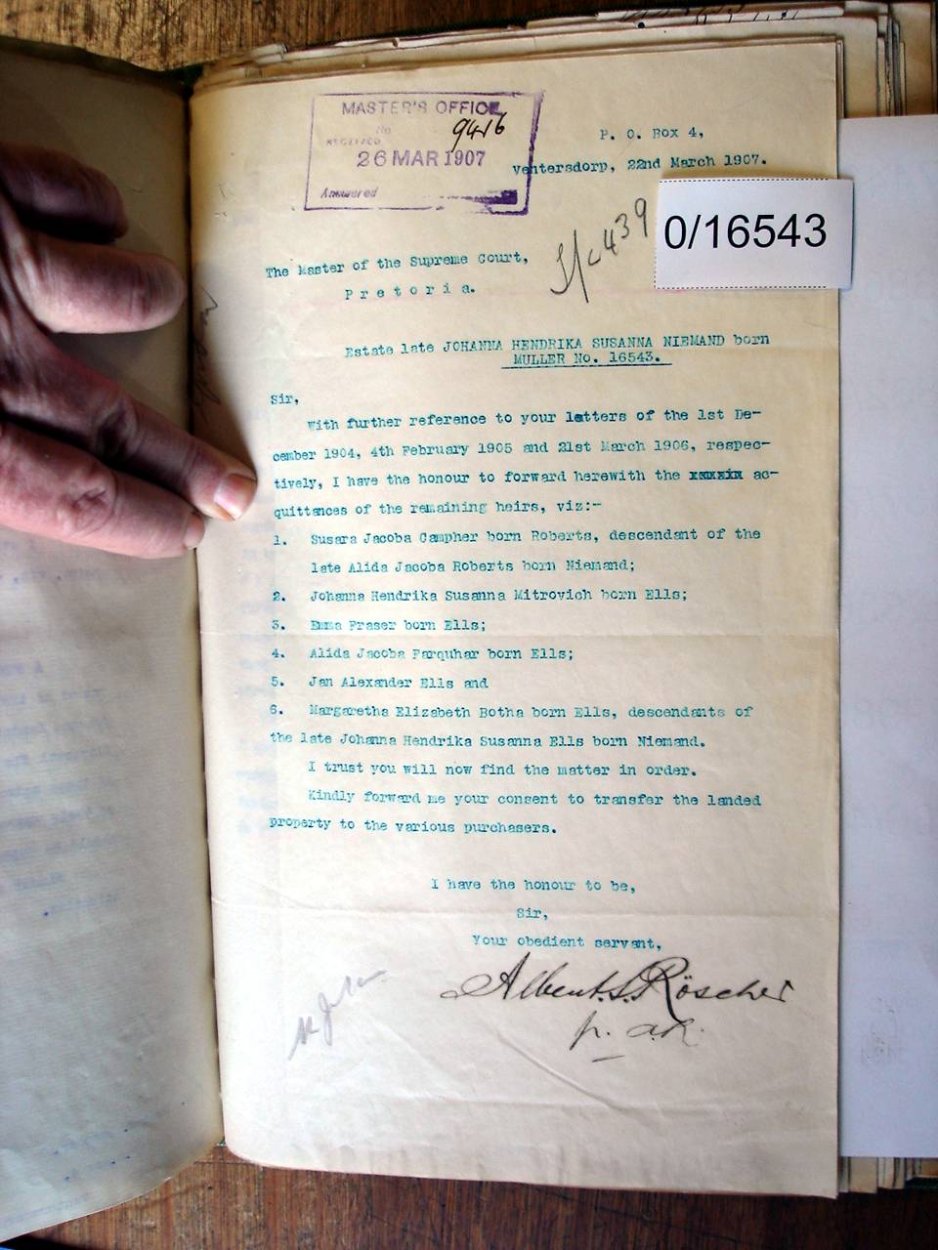 MASTER'S OFFICE
No 9416
RECEIVED
26 MAR 1907
Answered
P. O. Box 4,
Ventersdorp, 22nd March 1907.
0/16543
The Master of the Supreme Court,
P r e t o r i a.
Estate late JOHANNA HENDRIKA SUSANNA NIEMAND born
MULLER No. 16543.
Sir,
With further reference to your letters of the 1st De-
cember 1904, 4th February 1905 and 21st March 1906, respec-
tively, I have the honour to forward herewith the ac-
quittances of the remaining heirs, viz:-
1. Susara Jacoba Campher born Roberts, descendant of the
late Alida Jacoba Roberts born Niemand;
2. Johanna Hendrika Susanna Mitrovich born Ells;
3. Emma Fraser born Ells;
4. Alida Jacoba Farquhar born Ells;
5. Jan Alexander Ells and
6. Margaretha Elizabeth Botha born Ells, descendants of
the late Johanna Hendrika Susanna Ells born Niemand.
I trust you will now find the matter in order.
Kindly forward me your consent to transfer the landed
property to the various purchasers.
I have the honour to be,
Sir,
Your obedient servant,
Albert. S. Röscher